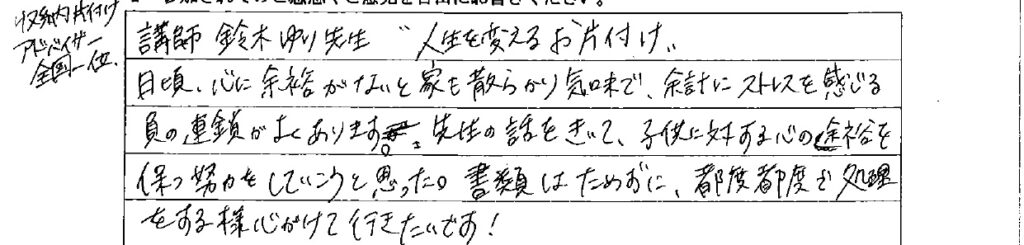 収納片付け
アドバイザー
全国一位、
講師 鈴木ゆり先生 “人生を変えるお片付け„
日頃、心に余裕がないと家も散らかり気味で、余計にストレスを感じる
負の連鎖がよくあります。先生の話をきいて、子供に対する心の余裕を
保つ努力をしていこうと思った。書類はためずに、都度都度で処理
をする様心がけて行きたいです！